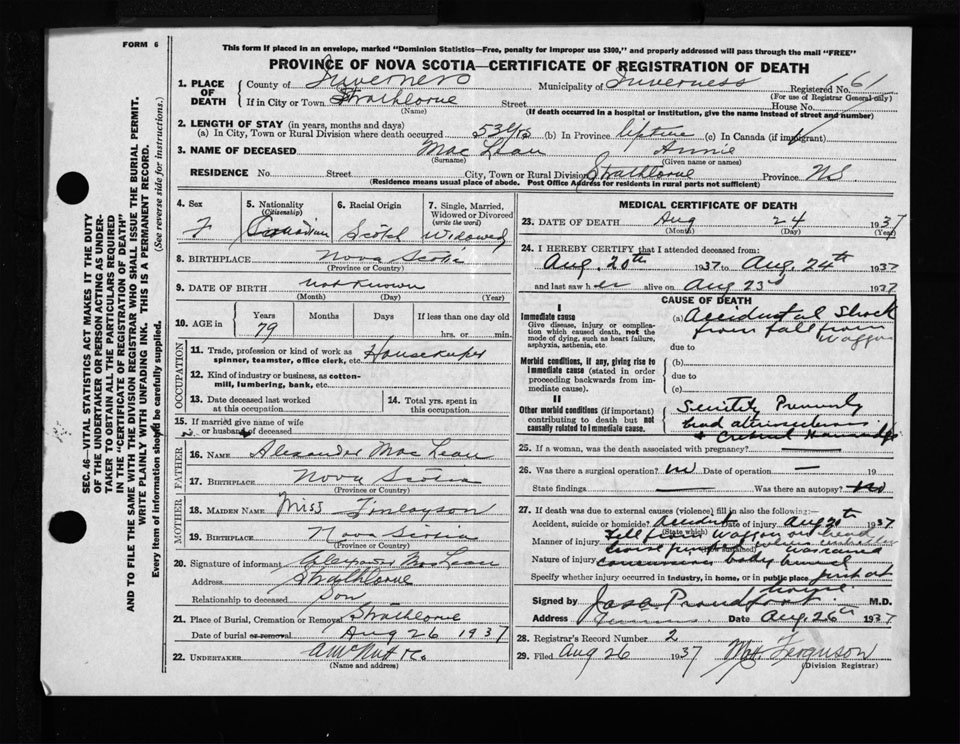 FORM 6
This form if placed in an envelope, marked "Dominion Statistics—Free, penalty for improper use $300," and properly addressed will pass through the mail "FREE"
PROVINCE OF NOVA SCOTIA—CERTIFICATE OF REGISTRATION OF DEATH
1. PLACE OF DEATH County of Inverness Municipality of Inverness Registered No. 61
(For use of Registrar General only)
If in City or Town Strathlorne Street House No.
(Name) (If death occurred in a hospital or institution, give the name instead of street and number)
2. LENGTH OF STAY (in years, months and days)
(a) In City, Town or Rural Division where death occurred 53 yrs (b) In Province lifetime (c) In Canada (if immigrant)
3. NAME OF DECEASED Mac Lean Annie
(Surname) (Given name or names)
RESIDENCE No. Street City, Town or Rural Division Strathlorne Province N.S.
(Residence means usual place of abode. Post Office Address for residents in rural parts not sufficient)
4. Sex F
5. Nationality (Citizenship) Canadian
6. Racial Origin Scotch
7. Single, Married, Widowed or Divorced (write the word) Widowed
8. BIRTHPLACE Nova Scotia
(Province or Country)
9. DATE OF BIRTH not known
(Month) (Day) (Year)
10. AGE in Years Months Days If less than one day
79 hrs. or min.
OCCUPATION
11. Trade, profession or kind of work as spinner, teamster, office clerk, etc. Housekeeper
12. Kind of industry or business, as cotton-mill, lumbering, bank, etc.
13. Date deceased last worked at this occupation
14. Total yrs. spent in this occupation
15. If married give name of wife or husband of deceased
FATHER
16. NAME Alexander Mac Lean
17. BIRTHPLACE Nova Scotia
(Province or Country)
MOTHER
18. MAIDEN NAME Miss Finlayson
19. BIRTHPLACE Nova Scotia
(Province or Country)
20. Signature of informant Alexander Mac Lean
Address Strathlorne
Relationship to deceased Son
21. Place of Burial, Cremation or Removal Strathlorne
Date of burial or removal Aug 26 1937
22. UNDERTAKER
(Name and address)
MEDICAL CERTIFICATE OF DEATH
23. DATE OF DEATH Aug 24 1937
(Month) (Day) (Year)
24. I HEREBY CERTIFY that I attended deceased from:
Aug. 20th 1937 to Aug. 24th 1937
and last saw her alive on Aug 23rd 1937
CAUSE OF DEATH
I
Immediate cause
Give disease, injury or complication which caused death, not the mode of dying, such as heart failure, asphyxia, asthenia, etc.
(a) Accidental Shock
from fall from
Waggon
due to
Morbid conditions, if any, giving rise to immediate cause (stated in order proceeding backwards from immediate cause).
(b)
due to
(c)
II
Other morbid conditions (if important) contributing to death but not causally related to immediate cause.
Senility
had
25. If a woman, was the death associated with pregnancy?
26. Was there a surgical operation? no Date of operation — 19
State findings — Was there an autopsy? no
27. If death was due to external causes (violence) fill in also the following:—
Accident, suicide or homicide? Accident Date of injury Aug 20th 1937
(State which)
Manner of injury Fell from Waggon
(How sustained)
Nature of injury body
Specify whether injury occurred in industry, in home, or in public place
Signed by M.D.
Address Date Aug. 26th 1937
28. Registrar's Record Number 2
29. Filed Aug 26 1937 Ferguson
(Division Registrar)
SEC. 46—VITAL STATISTICS ACT MAKES IT THE DUTY
OF THE UNDERTAKER OR PERSON ACTING AS UNDER-
TAKER TO OBTAIN ALL THE PARTICULARS REQUIRED
IN THE "CERTIFICATE OF REGISTRATION OF DEATH"
AND TO FILE THE SAME WITH THE DIVISION REGISTRAR WHO SHALL ISSUE THE BURIAL PERMIT.
WRITE PLAINLY WITH UNFADING INK. THIS IS A PERMANENT RECORD.
Every item of information should be carefully supplied. (See reverse side for instructions.)